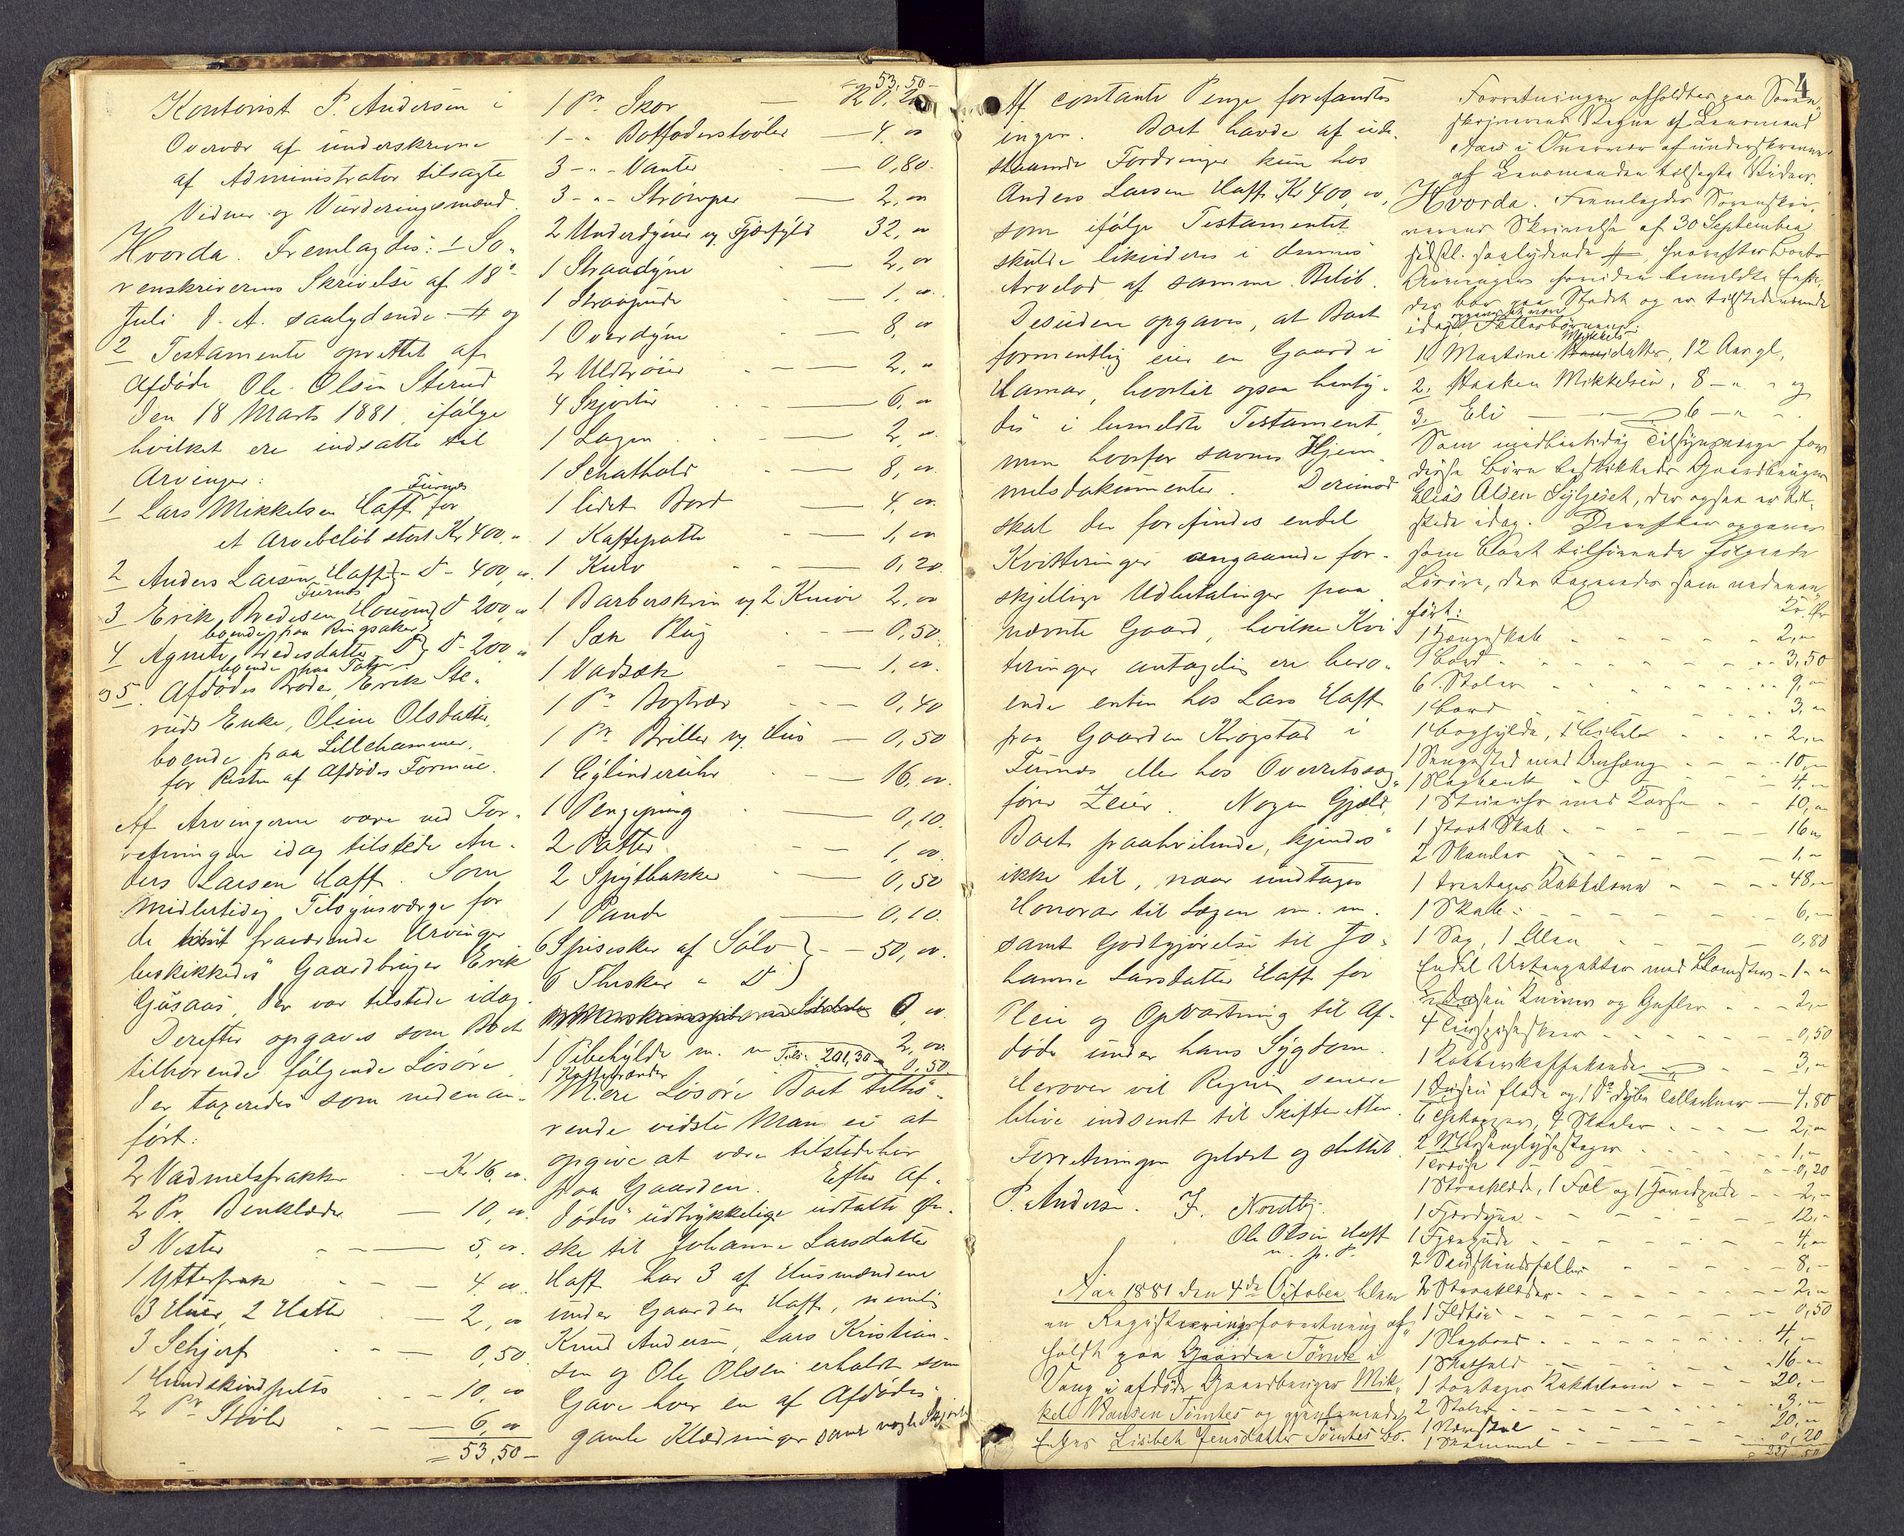 Kontorist P. Andersen i
Overvær af underskrevne
af Administrator tilsagte
Vidner og Vurderingsmænd.
Hvorda. Fremlagdes: 1 So-
renskriverens Skrivelse af 18de
Juli d. A. saalydende # og
2 Testamente oprettet af
Afdøde Ole Olsen Sterud
den 18 Marts 1881. ifølge
hvilket ere indsatte til
Arvinger:
1 Lars Mikkelsen Haff Furnes for
et Arvebeløb stort Kr 400, "
2 Anders Larsen Haff - D - 400, "
3 Erik Furnes D 200, "
boende paa Ringsaker
4 Agnete D - 200 "
boende paa
og 5. Afdødes Broder, Erik Ste-
ruds Enke, Oline Olsdatter,
boende paa Lillehammer,
for Resten af Afdødes Formue.
Af Arvingerne vare ved For-
retningen idag tilstede An-
ders Larsen Haff. Som
midlertidig Tilsynsværge for
de fraværende Arvinger
beskikkedes Gaardbruger Erik
Gjøsaas, der var tilstede idag.
Derefter opgaves som Boet
tilhørende følgende Løsøre
der taxeredes som nedenan-
ført:
2 Vadmelsfrakker Kr 16, "
2 Pr. Benklæder 10, "
3 Vester 5, "
1 Ytterfrak 4, "
3 Huer, 2 Hatte 2, "
3 Schjerf 0,50
1 Hundskindspelts 10, "
2 Pr Støvler 6, "
= 53,50
53,50
1 Pr Skor
1 - " Botfoderstøvler 4, "
3 - " - Vanter 0,80
3 - " - Strømper 2, "
2 Underdyner og Fjørfyld 32, "
1 Straadyne 2, "
1 Straapude 1, "
1 Overdyne 8, "
2 Uldtrøier 2, "
4 Skjorter 6, "
1 Lagen 2, "
1 Schathold 8, "
1 lidet Bord 4, "
1 Kaffepotte 1, "
1 Kurv 0,20
1 Barberskrin og 2 Knive 2, "
1 Sæk Plug 0,50
1 Vadsæk 1, "
1 Pr 0,40
1 Pr Briller og Hus 0,50
1 Cylinderuhr 16, "
1 Pengepung 0,10
2 Potter 1, "
2 Spytbakker 0,50
1 Pande 0,10
6 Spiseskeer af Sølv } 50, "
6 Theskeer " D
1 Pibehylde m. m 2, "
Tils. 201,30
1 Kaffebrænder 0,50
Mere Løsøre Boet tilhø-
rende vidste Man ei at
opgive at være tilstede her
paa Gaarden. Efter Af-
dødes udtrykkelige udtalte Øn-
ske til Johanne Larsdatter
Haff har 3 af Husmændene
under Gaarden Haff, nemlig
Knud Andersen, Lars Kristian-
sen og Ole Olsen erholdt som
Gave hver en af Afdødes
gamle Klædninger samt nogle Skjorter
Af contante Penge forefandtes
ingen. Boet havde af ude-
staaende Fordringer kun hos
Anders Larsen Haff Kr 400, ",
som ifølge Testamentet
skulde likvideres i dennes
Arvelod af samme Beløb.
Desuden opgaves, at Boet
formentlig eier en Gaard i
Hamar, hvortil ogsaa henty-
des i bemeldte Testament,
men hvorfor savnes Hjem-
melsdokumenter. Derimod
skal der forefindes endel
Kvitteringer angaaende for-
skjellige Udbetalinger paa
nævnte Gaard, hvilke Kvi-
teringer antagelig ere bero-
ende enten hos Lars Haff
paa Gaarden Krogstad i
Furnes eller hos Overretssag-
fører Zeier. Nogen Gjæld,
Boet paahvilende, kjendes
ikke til, naar undtages
Honorar til Lægen m. m.
samt Godtgjørelse til Jo-
hanne Larsdatter Haff for
Pleie og Opvartning til Af-
døde under hans Sygdom.
Herover vil Regning senere
blive indsendt til Skifteretten.
Forretningen oplæst og sluttet.
P. Andersen. J. Nordby.
Ole Olsen Haff
m. p. P.
Aar 1881 den 4de October blev
en Registreringsforretning af-
holdt paa Gaarden Tømte i
Vang i afdøde Gaardbruger Mik-
kel Hansen Tømtes og gjenlevende
Enkes Lisbeth Jensdatter Tømtes Bo.
4
Forretningen afholdtes paa Soren-
skriverens Vegne af Lensmand
i Overvær af underskrevne
af Lensmanden tilsagte Vidner.
Hvorda. Fremlagdes Sorenskri-
verens Skrivelse af 30 September
sidstl. saalydende #, hvorefter Boets
Arvinger foruden bemeldte Enke,
der bor paa Stedet og er tilstedeværende
idag, opgaves at være Fællesbørnene:
1. Martine Mikkelsdatter, 12 Aar gl.
2. Haaken Mikkelsen, 8 - " - " og
3. Eli - 6 - " -
Som midlertidig Tilsynsværge for
disse Børn beskikkedes Gaardbruger
Elias Olsen, der ogsaa er til-
stede idag. Derefter opgaves
som Boet tilhørende følgende
Løsøre, der taxeredes som nedenan-
ført: Kr. Ør
1 Hængeskab 2, "
1 Bord 3,50
6 Stoler 9, "
1 Bord 3, "
1 Boghylde, 1 Bibel 2, "
1 Sengested med Omhæng 10, "
1 Slagbænk 4, "
1 Stueuhr med Kasse 10, "
1 stort Skab 16 "
2 Spander 1, "
1 treetages Kakkelovn 48, "
1 Skab 6, "
1 Sag, 1 Alen 0,80
Endel Urtepotter med Blomster 1 "
Dusin Kniver og Gafler 2, "
4 0,50
1 Kobberkaffekande 3, "
1 Dusin flade og 1 Do dybe Tallerkner 4,80
6 4 Skaaler 2, "
2 Messinglysestager 1, "
0,20
1 Straaklæde, 1 Fæl og 1 Hovedpude 2, "
1 Fjærdyne 12, "
1 Fjærpude 4, "
2 Saueskindsfeller 8, "
2 Straaklæder 2, "
1 Ildtøi 0,50
1 Slagbord 4, "
1 Skathold 16 "
1 toetages Kakkelovn 20, "
2 Stoler 3, "
1 Vævstol 20, "
1 Skammel 0,20
231,50